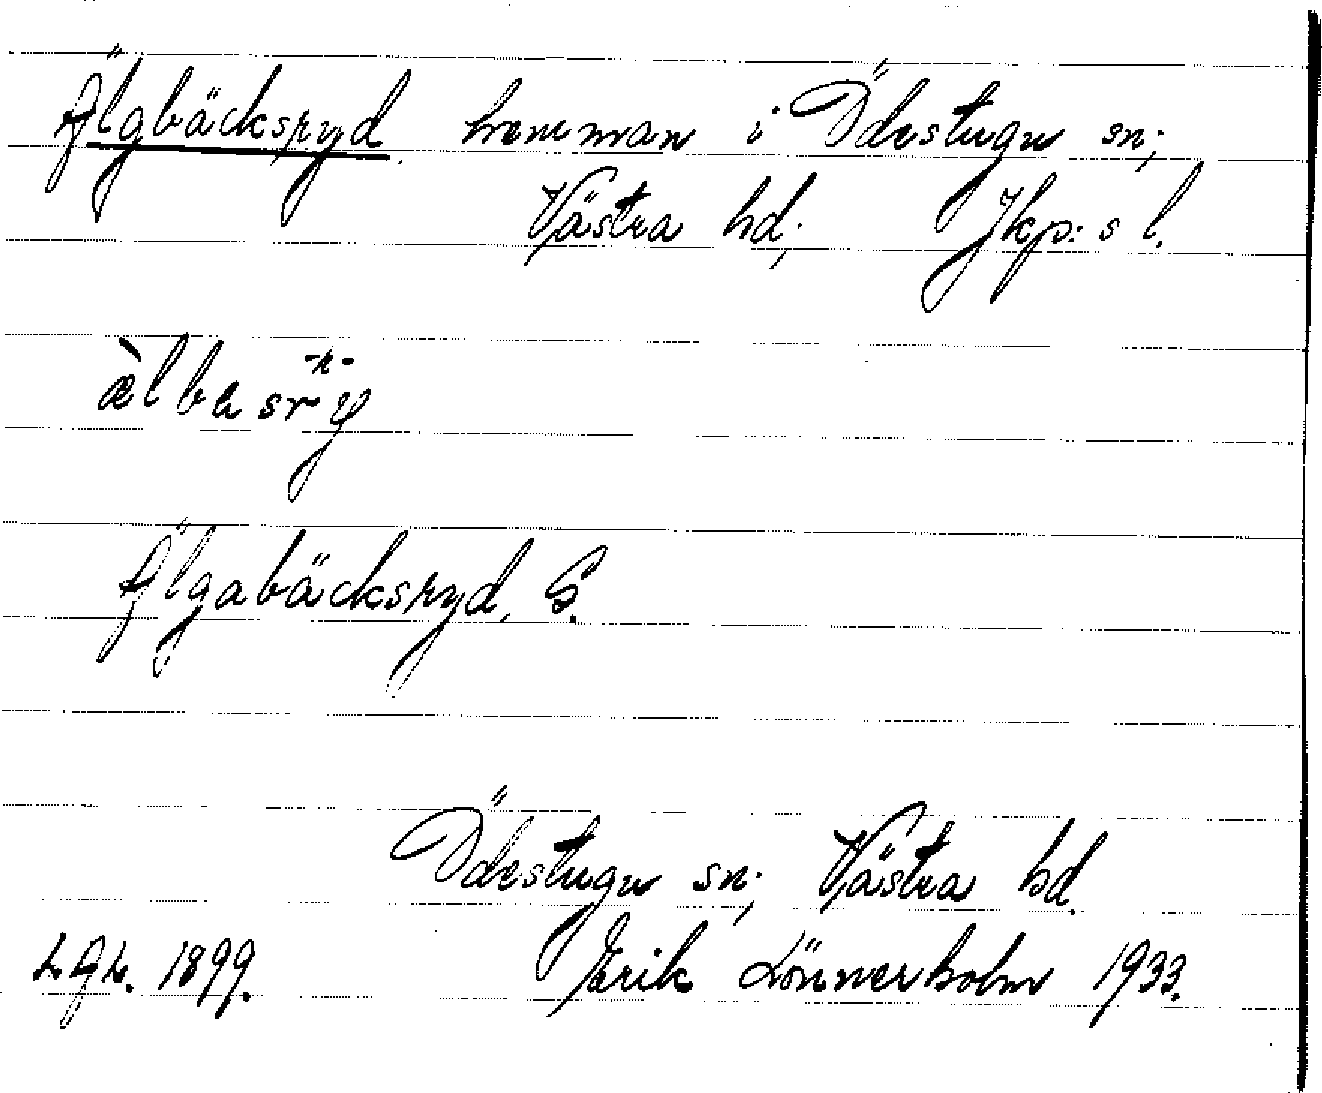 Älgbäcksryd hemman i Ödestugu sn;
Västra hd; Jkp:s l.
æ̀lbasry
-r-
Älgabäcksryd, S.
Ödestugu sn; Västra hd.
1899. Erik Lönnerholm 1933.